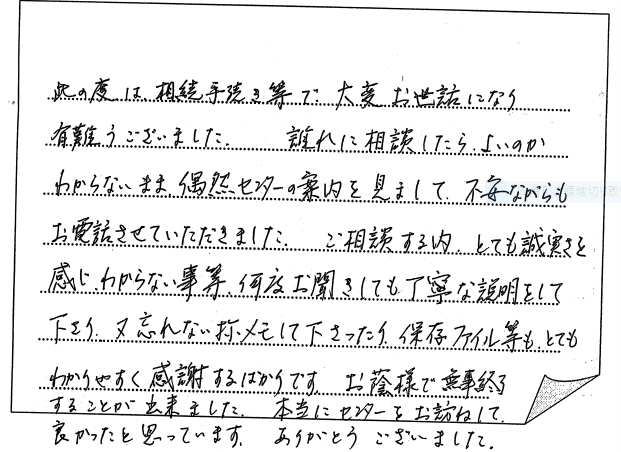 此の度は、相続手続き等で、大変お世話になり
有難うございました。 誰れに相談したら、よいのか
わからないまま、偶然、センターの案内を見まして、不安ながらも
お電話させていただきました。 ご相談する内、とても誠実さを
感じ、わからない事等、何度お聞きしても丁寧な説明をして
下さり、又忘れない称メモして下さったり、保存ファイル等も、とても
わかりやすく感謝するばかりです。 お蔭様で無事終了
することが出来ました。 本当にセンターをお訪ねして、
良かったと思っています。 ありがとうございました。